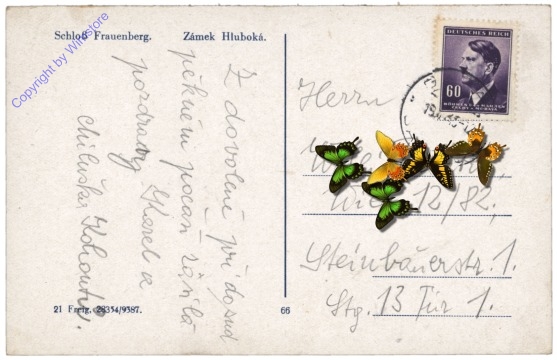 Schloß Frauenberg. Zámek Hluboká.
Copyright by Winstore
Z dovolené při dosud
pěkném počasí zasílá
pozdravy Karel a
60
BÖHMEN UND MÄHREN
ČECHY A MORAVA
Herrn
Wien 12/82,
Steinbauerstr. 1.
Stg. 13 Tür 1.
21 Freig. 28354/9387.
66